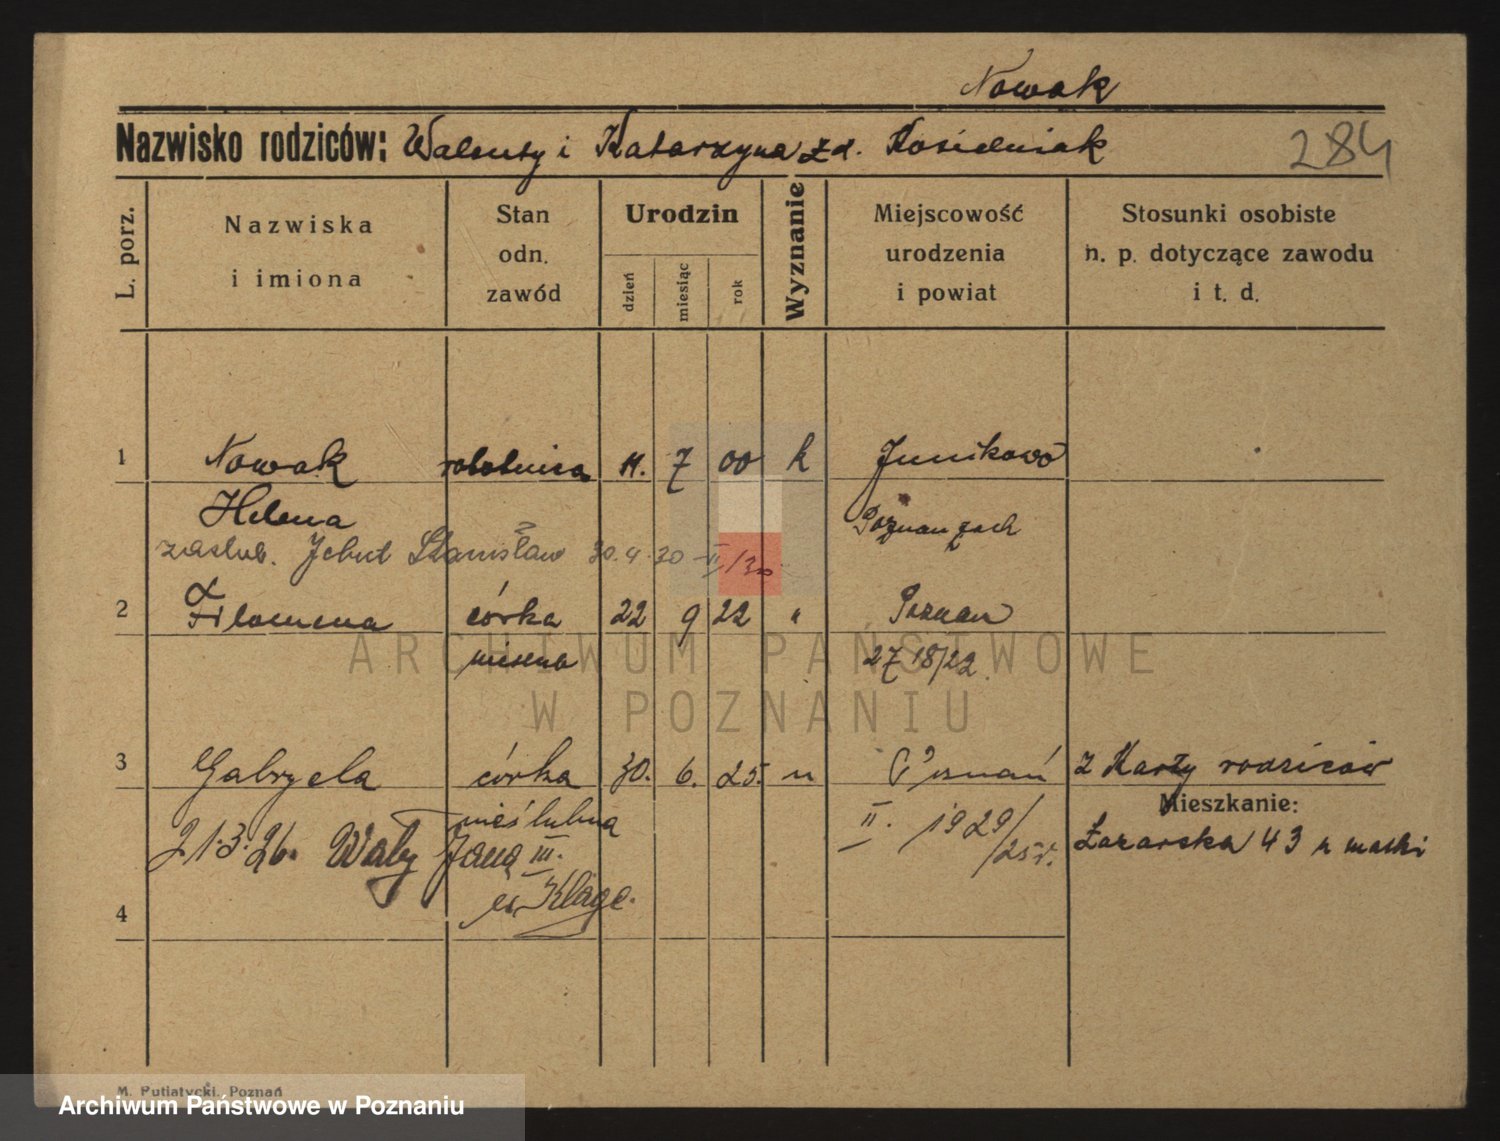 Nowak
Nazwisko rodziców: Walenty i Katarzyna z d. Kościelniak
284
L. porz.
Nazwiska i imiona
Stan odn. zawód
Urodzin
dzień
miesiąc
rok
Wyznanie
Miejscowość urodzenia i powiat
Stosunki osobiste n. p. dotyczące zawodu i t. d.
1 Nowak robotnica 11. 7 00 k Junikowo
Helena Poznań zach
zaślub. Jebut Stanisław 30.4.30 II/30
2 Filomena córka 22 9 22 " Poznań
nieślu 27 18/22
ARCHIWUM PAŃSTWOWE
W POZNANIU
3 Gabryela córka 30. 6. 25. " Poznań z Karty rodziców
nieślubna II. 1929/25r.
Mieszkanie:
21.3.26. Wały Jana III. Łazarska 43 u matki
Klage.
4
M. Putiatycki, Poznań
Archiwum Państwowe w Poznaniu